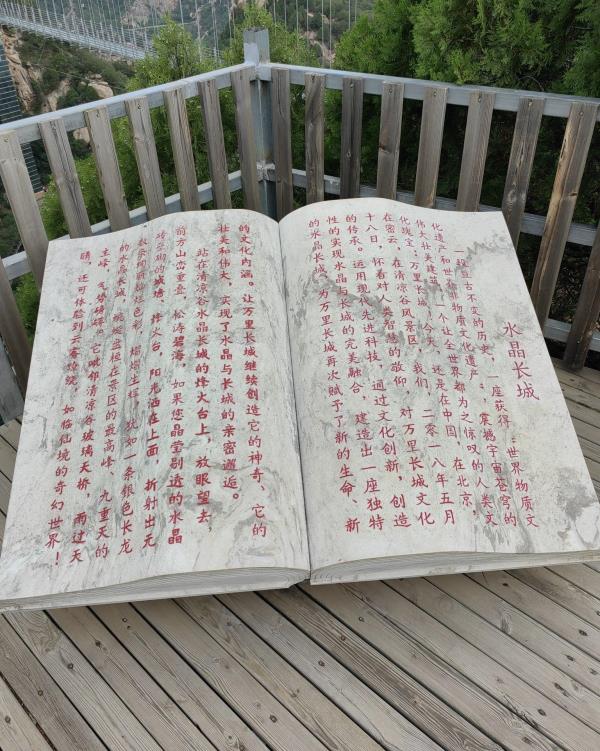 水晶长城
一段亘古不变的历史，一座获得“世界物质文
化遗产和世界非物质文化遗产”，震撼宇宙苍穹的
伟大壮美建筑，一个让全世界都为之惊叹的人类文
化瑰宝：万里长城！今天，还是在中国，在北京，
在密云，在清凉谷风景区，我们，二零一八年五月
十八日，怀着对人类智慧的敬仰，对万里长城文化
的传承。运用现代先进科技，通过文化创新，创造
性的实现水晶与长城的完美融合，建造出一座独特
的水晶长城，为万里长城再次赋予了新的生命、新
的文化内涵。让万里长城继续创造它的神奇、它的
壮美和伟大，实现了水晶与长城的亲密邂逅。
站在清凉谷水晶长城的烽火台上，放眼望去，
前方山峦叠，松涛碧海，如果您晶莹剔透的水晶
垒砌的城墙、烽火台，阳光洒在上面，折射出无
数条绚丽灿烂色彩，熠熠生辉，犹如一条银色长龙
的水晶长城，蜿蜒盘桓在景区的最高峰，九重天的
主峰，气势磅礴。它毗邻清凉谷玻璃天桥，雨过天
晴，还可体验到云雾缭绕，如临仙境的奇幻世界！